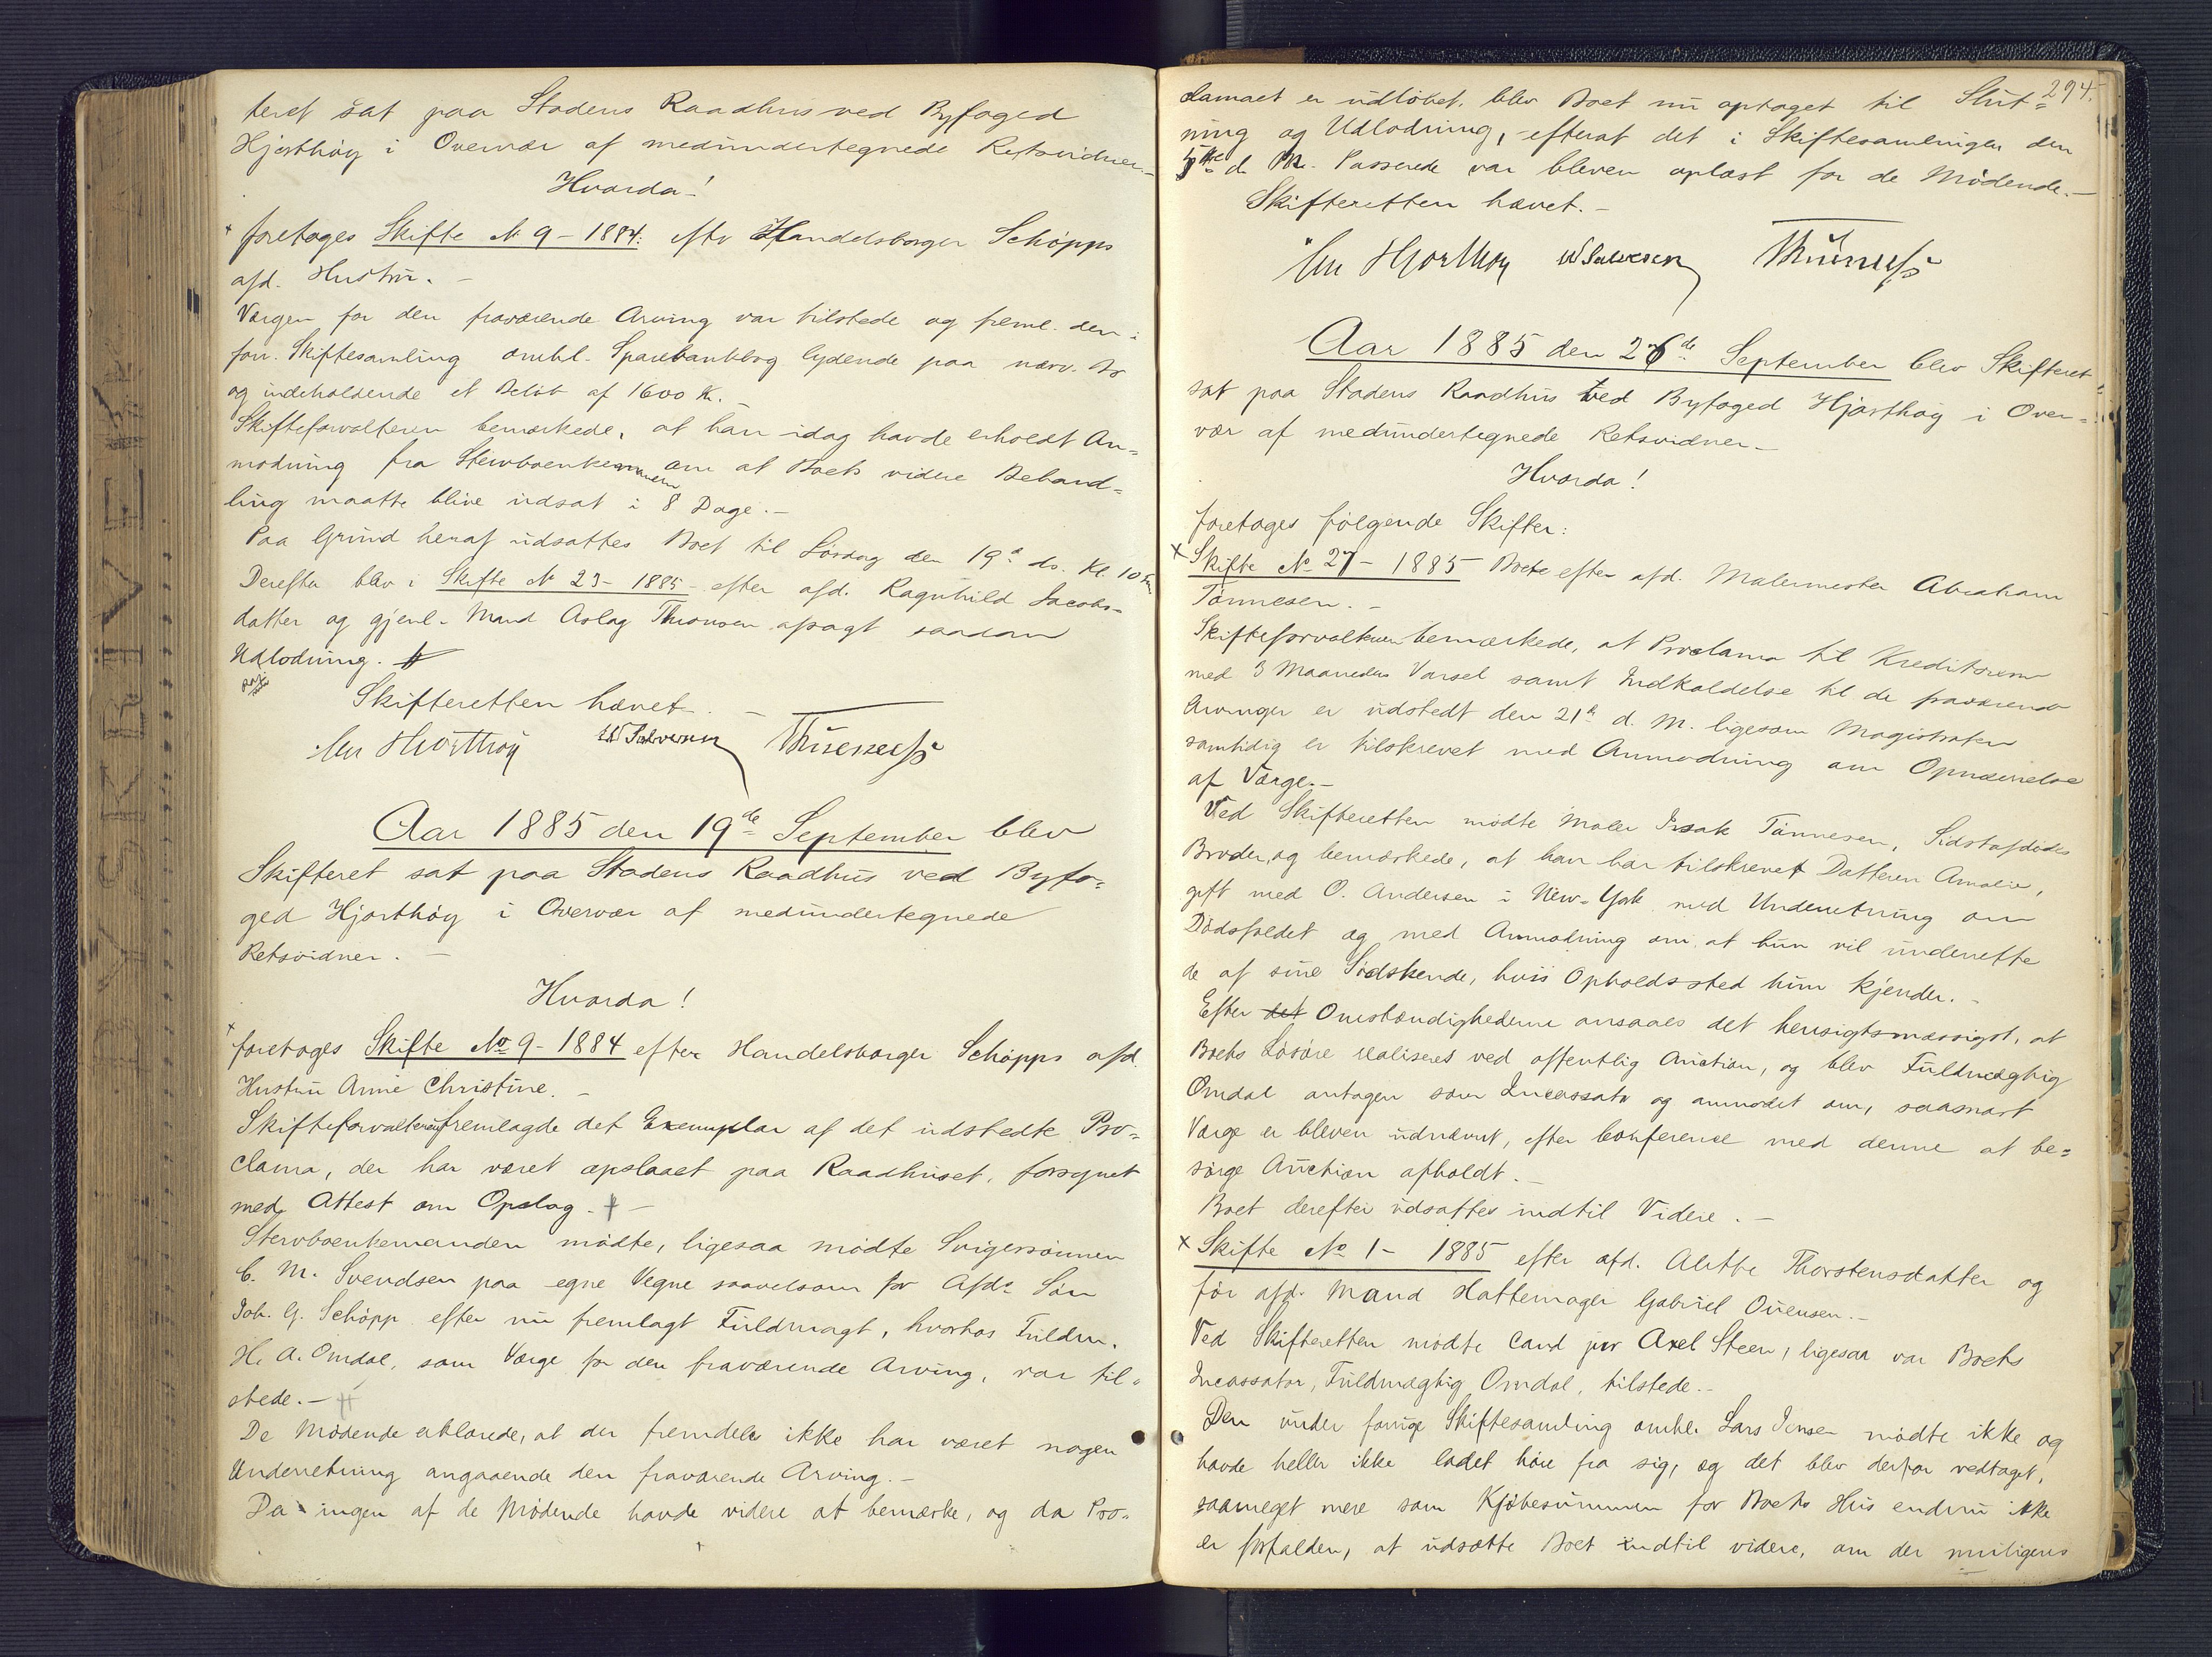 teret sat paa Stadens Raadhus ved Byfoged
Hjorthøy i Overvær af medundertegnede Retsvidner. –
Hvorda!
foretoges Skifte № 9 – 1884: efter Handelsborger Schøpps
afd. Hustru. –
Værgen for den fraværende Arving var tilstede og freml. den i
forr. Skiftesamling omhl. Sparebankbog lydende paa nærv. Bo
og indeholdende et Beløb af 1600 Kr. –
Skifteforvalteren bemærkede, at han idag havde erholdt An-
modning fra Stervboenkemanden om at Boets videre Behand-
ling maatte blive udsat i 8 Dage. –
Paa Grund heraf udsattes Boet til Lørdag den 19de ds. Kl. 10 Fm
Derefter blev i Skifte № 23 – 1885 efter afd. Ragnhild Jacobs-
datter og gjenl. Mand Aslag Thronsen afsagt saadan
Udlodning.
Skifteretten hævet. –
Chr Hjorthøy W Salvesen
Aar 1885 den 19de September blev
Skifteret sat paa Stadens Raadhus ved Byfo-
ged Hjorthøy i Overvær af medundertegnede
Retsvidner. –
Hvorda!
foretoges Skifte No 9 – 1884 efter Handelsborger Schøpps afd.
Hustru Anne Christine. –
Skifteforvalteren fremlagde det Exemplar af det udstedte Pro-
clama, der har været opslaaet paa Raadhuset, forsynet
med Attest om Opslag. –
Stervboenkemanden mødte, ligesaa mødte Svigersønnen
C. M. Svendsen paa egne Vegne saavelsom for Afds Søn
Joh. G. Schøpp efter nu fremlagt Fuldmagt, hvorhos Fuldm.
H. A. Omdal, som Værge for den fraværende Arving, var til-
stede. –
De Mødende erklærede, at der fremdeles ikke har været nogen
Underretning angaaende den fraværende Arving. –
Da ingen af de Mødende havde videre at bemærke, og da Pro-
294.
clamaet er udløbet, blev Boet nu optaget til Slut-
ning og Udlodning, efterat det i Skiftesamlingen den
5te d. M. Passerede var bleven oplæst for de Mødende. –
Skifteretten hævet. –
Chr Hjorthøy W Salvesen
Aar 1885 den 26de September blev Skifteret
sat paa Stadens Raadhus ved Byfoged Hjorthøy i Over-
vær af medundertegnede Retsvidner –
Hvorda!
foretoges følgende Skifter:
Skifte № 27 – 1885 Boet efter afd. Malermester Abraham
Tønnesen. –
Skifteforvalteren bemærkede, at Proclama til Kreditorerne
med 3 Maaneders Varsel samt Indkaldelse til de fraværende
Arvinger er udstedt den 21de d. M. ligesom Magistraten
samtidig er tilskrevet med Anmodning om Opnævnelse
af Værge. –
Ved Skifteretten mødte Maler Isak Tønnesen, Sidstafdødes
Broder, og bemærkede, at han har tilskrevet Datteren Amalie,
gift med O. Andersen i New-York med Underretning om
Dødsfaldet og med Anmodning om at hun vil underrette
de af sine Sødskende, hvis Opholdssted hun kjender. –
Efter det Omstændighederne ansaaes det hensigtsmæssigst, at
Boets Løsøre realiseres ved offentlig Auction, og blev Fuldmægtig
Omdal antagen som Incassator og anmodet om, saasnart
Værge er bleven udnævnt, efter Conference med denne at be-
sørge Auction afholdt. –
Boet derefter udsattes indtil Videre. –
Skifte № 1 – 1885 efter afd. Alethe Thorstensdatter og
før afd. Mand Hattemager Gabriel Ouensen. –
Ved Skifteretten mødte Cand jur Axel Steen, ligesaa var Boets
Incassator, Fuldmægtig Omdal, tilstede. –
Den under forrige Skiftesamling omhl. Lars Jensen mødte ikke og
havde heller ikke ladet høre fra sig, og det blev derfor vedtaget,
saameget mere som Kjøbesummen for Boets Hus endnu ikke
er forfalden, at udsætte Boet indtil videre, om der muligens